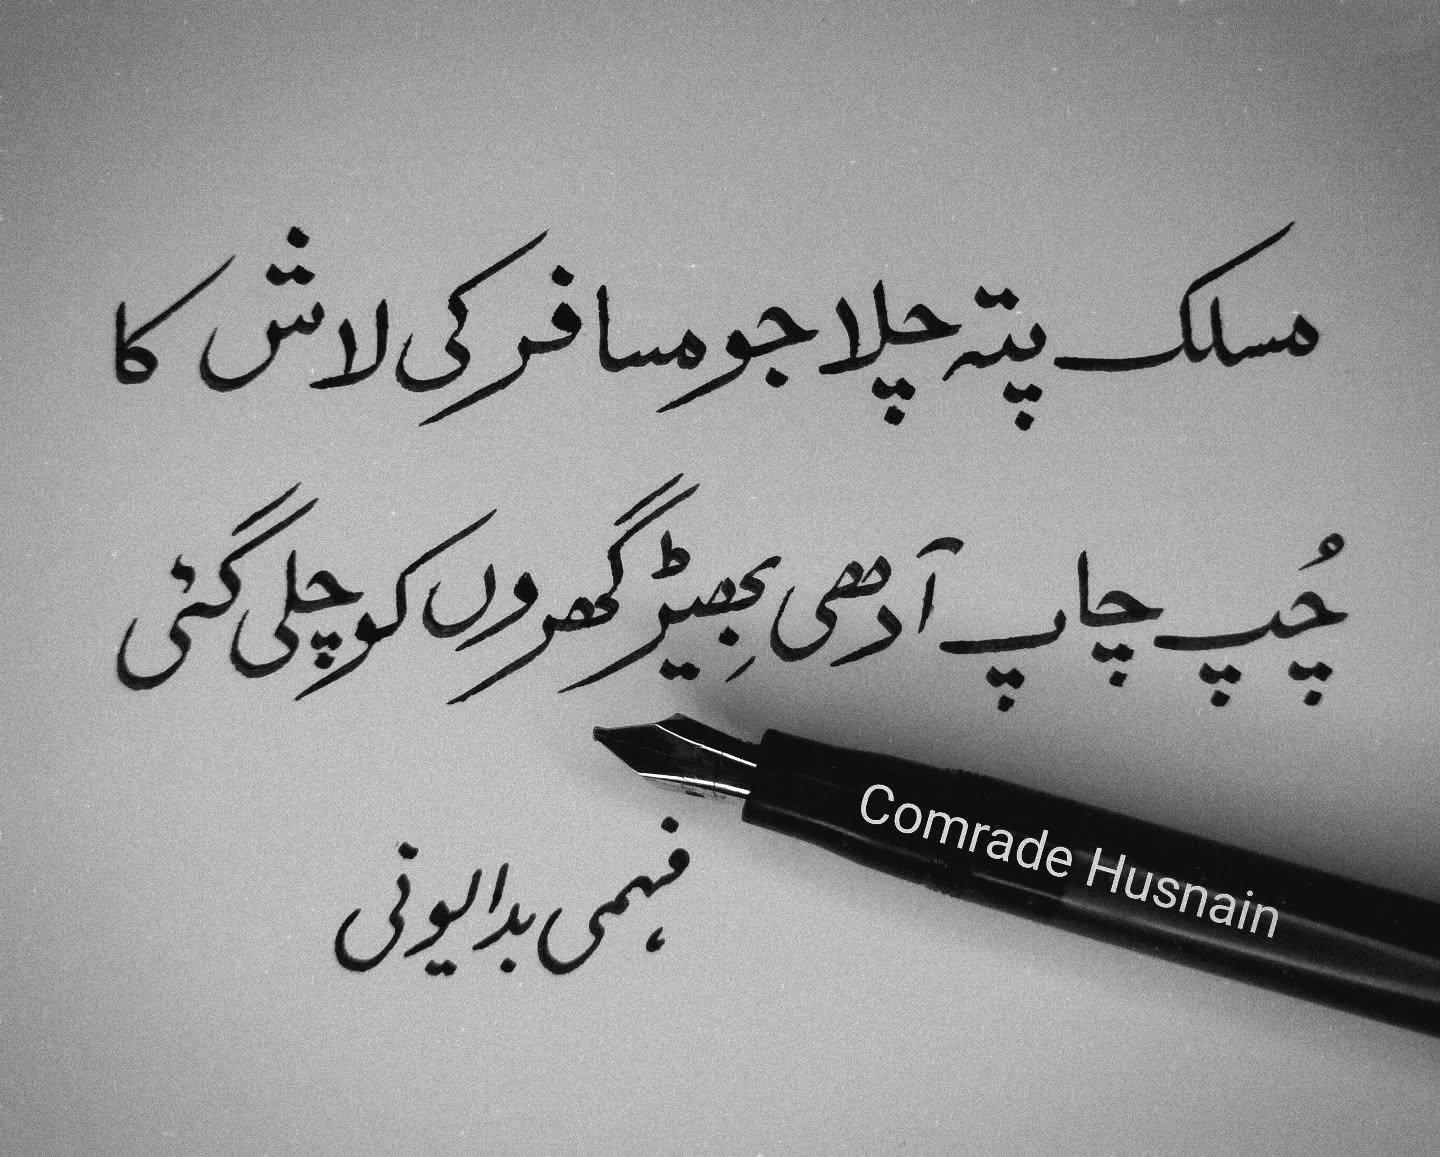 مسلک پتہ چلا جو مسافر کی لاش کا
چُپ چاپ آدھی بھِیڑ گھروں کو چلی گئی
فہمی بدایونی
Comrade Husnain